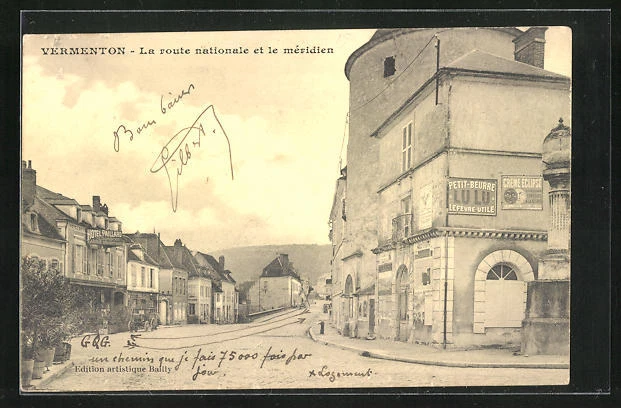 VERMENTON - La route nationale et le méridien
Bons baisers
Gilbert.
HOTEL PAILLARD
PETIT-BEURRE
LU LU
LEFÈVRE-UTILE
CRÈME ECLIPSE
G.Q.G.
un chemin que je fais 75000 fois par
jour
x Logement
Edition artistique Bailly